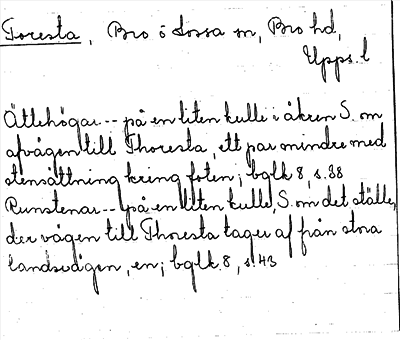 Toresta, Bro o Lossa sn, Bro hd,
Upps. l
Ättehögar -- på en liten kulle i åkren S. om
afvägen till Thoresta, ett par mindre med
stensättning kring foten; bglk 8, s. 38
Runstenar -- på en liten kulle, S. om det ställe,
der vägen till Thoresta tages af från stora
landsvägen, en; bglk. 8, s. 43